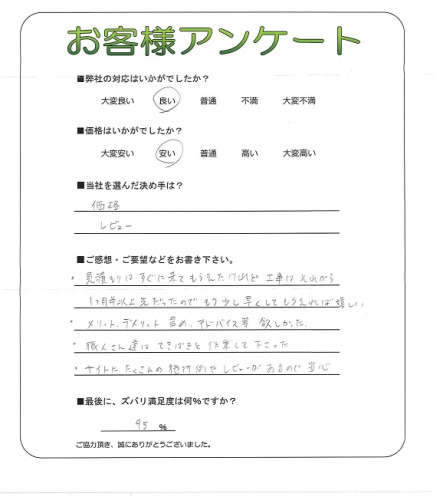 お客様アンケート
■弊社の対応はいかがでしたか?
大変良い 良い 普通 不満 大変不満
■価格はいかがでしたか?
大変安い 安い 普通 高い 大変高い
■当社を選んだ決め手は?
価格
レビュー
■ご感想・ご要望などをお書き下さい。
・見積もりはすぐに来てもらえたけれど 工事はそれから
1ヶ月半以上先だったので もう少し早くしてもらえれば嬉しい。
・メリット、デメリット 含め、アドバイス等 欲しかった。
・職人さん達は てきぱきと 作業して下さった
・サイトに たくさんの 施工例や レビューが あるので 安心
■最後に、ズバリ満足度は何%ですか?
95 %
ご協力頂き、誠にありがとうございました。